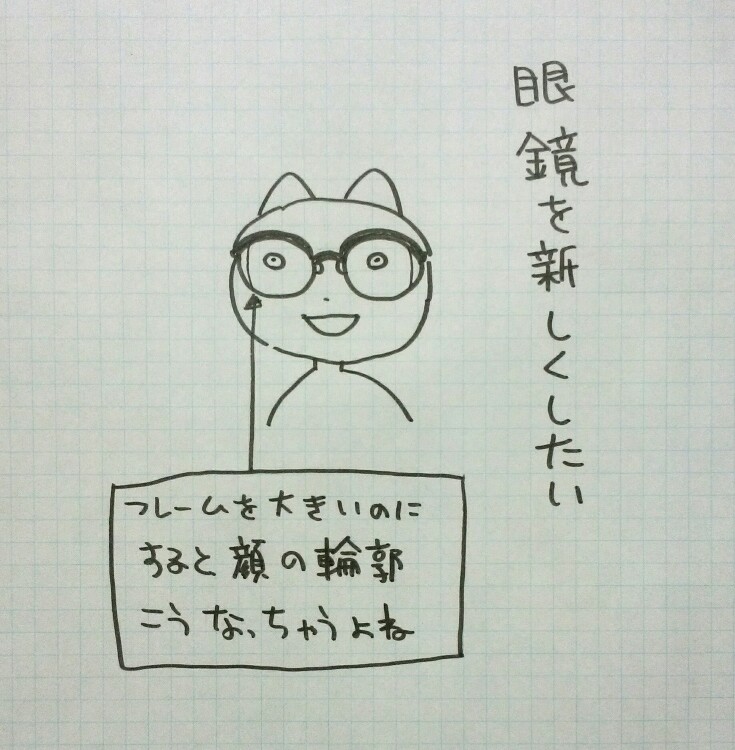 眼鏡を新しくしたい
フレームを大きいのに
すると顔の輪郭
こうなっちゃうよね